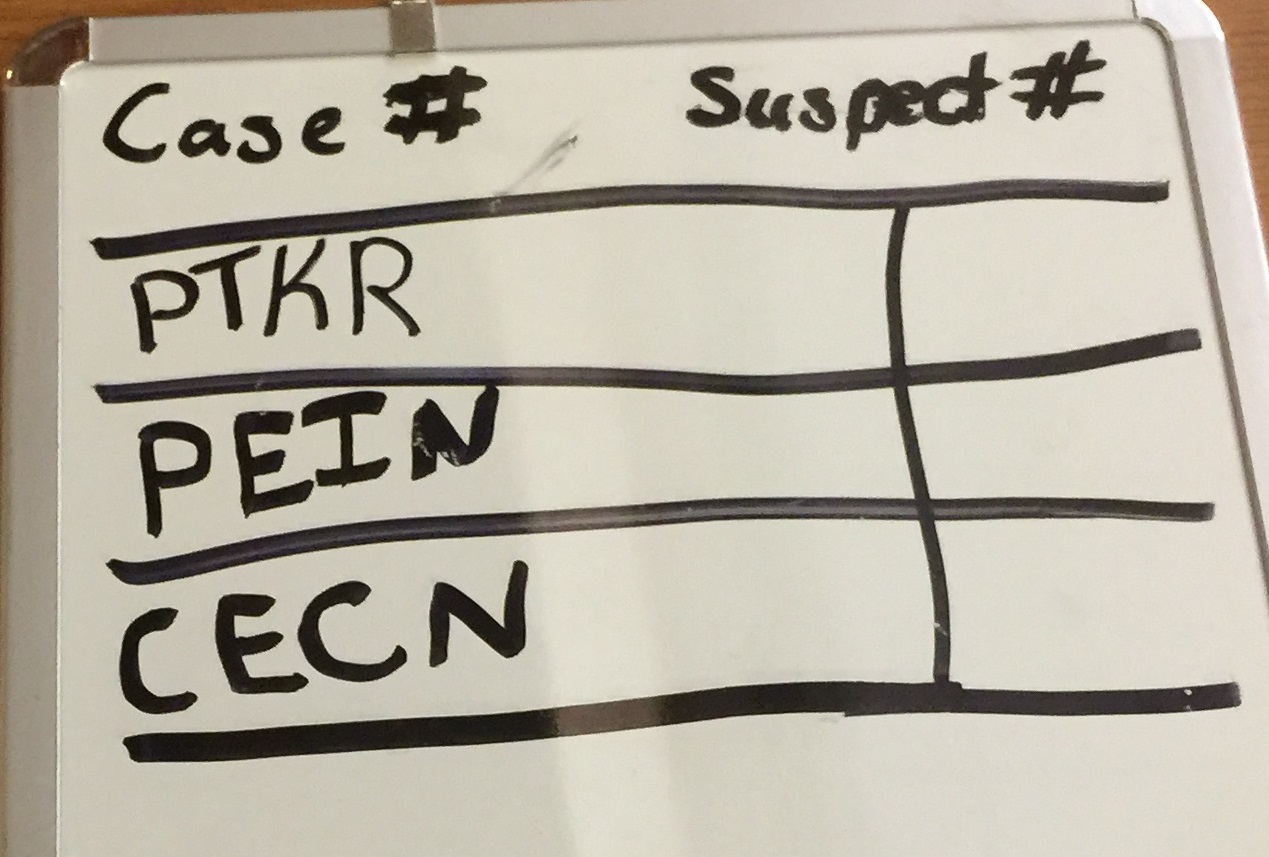 Case # Suspect #
PTKR
PEIN
CECN